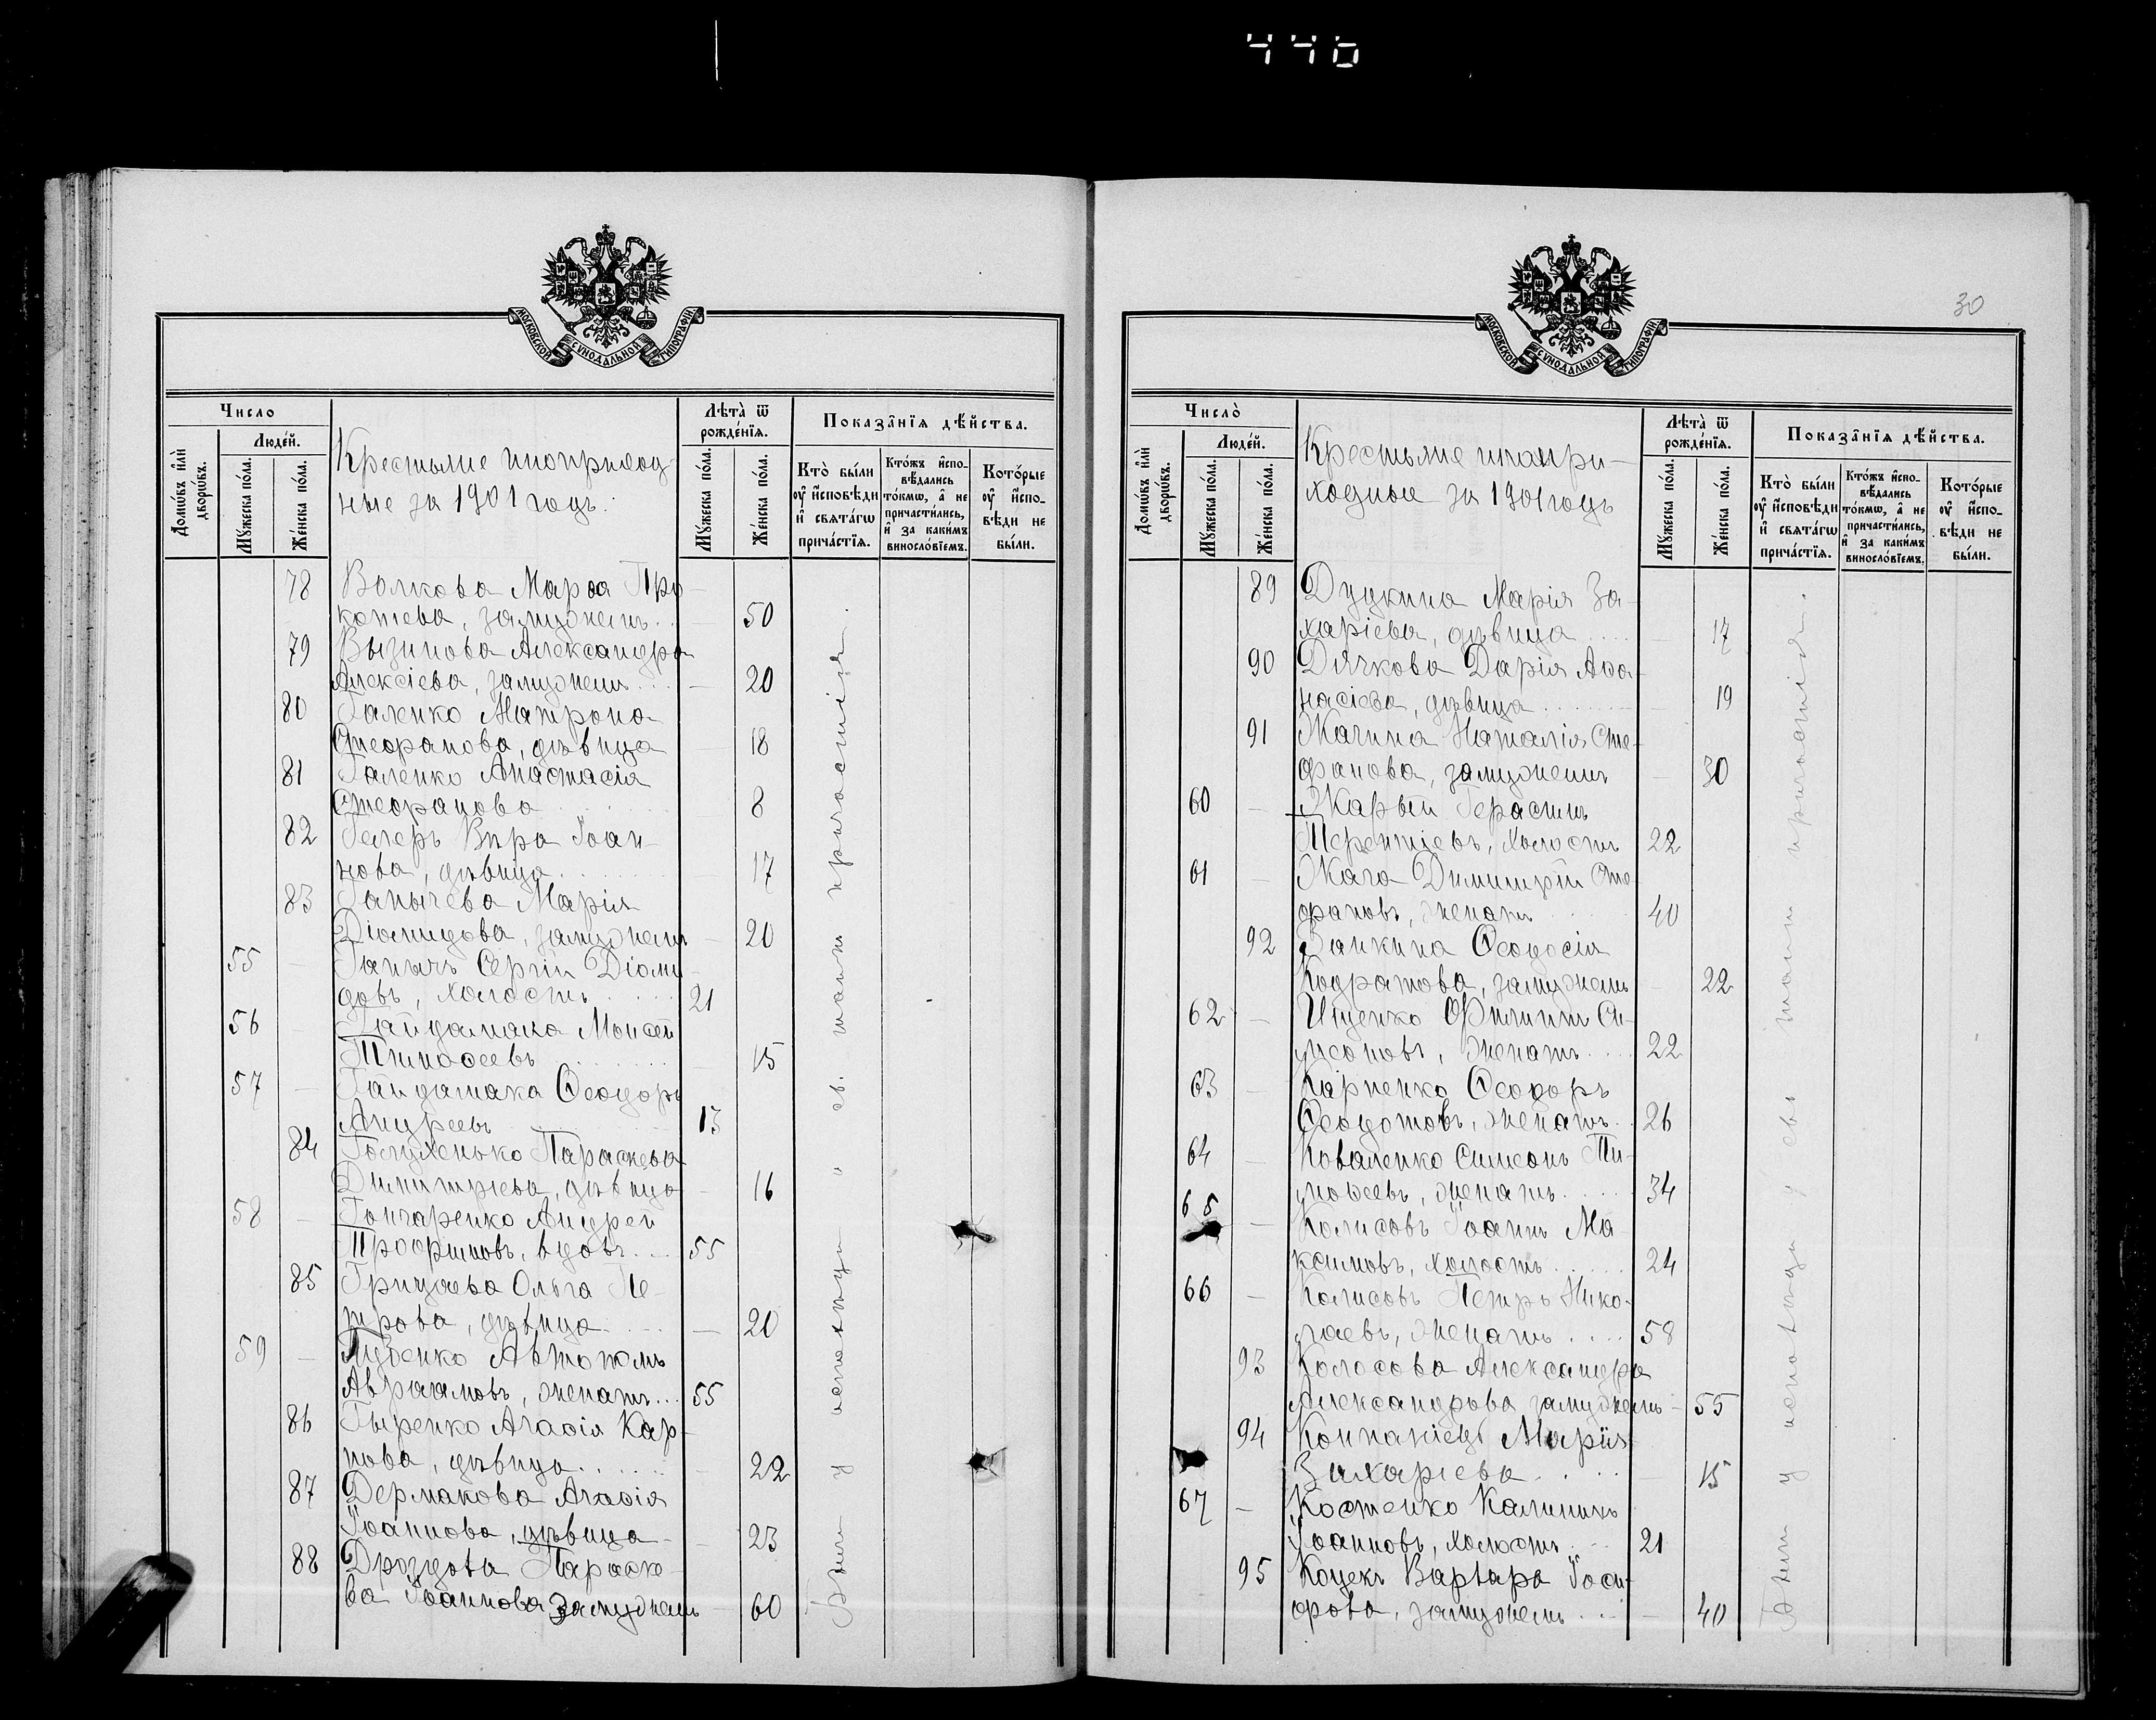 440
МОСКОВСКОЙ СѴНОДАЛЬНОЙ ТИПОГРАФІИ
Число
Домѡвъ и҆лѝ дворѡвъ.
Люде́й.
Мꙋ́жеска по́ла.
Же́нска по́ла.
Крестьяне иноприход-
ные за 1901 годъ.
Лѣта̀ ѿ рожде́нїѧ.
Мꙋ́жеска по́ла.
Же́нска по́ла.
Показа̑нїѧ дѣ́йства.
Кто̀ бы́ли оу҆ и҆сповѣ́ди и҆ свѧта́гѡ прича́стїѧ.
Кто́жъ и҆спо- вѣ́дались то́кмѡ, а҆ не причасти́лись, и҆ за каки́мъ винословїемъ.
Кото́рые оу҆ и҆спо- вѣ́ди не бы́ли.
78 Волкова Марѳа Про
копіева, замужемъ. 50
79 Вызинова Александра
Алексіева, замужемъ 20
80 Галенко Матрона
Стефанова, дѣвица 18
81 Галенко Анастасія
Стефанова 8
82 Гелеръ Вѣра Іоан-
нова, дѣвица 17
83 Ганычева Марія
Діомидова, замужемъ 20
55 Ганычъ Сергій Діоми
довъ, холостъ 21
56 Гайдамака Моисей
Тимоѳеевъ 15
57 Гайдамака Ѳеодоръ
Андреевъ 13
84 Параскева
Димитріева, дѣвица 16
58 Гончаренко Андрей
Трофимовъ, вдовъ 55
85 Грицаева Ольга Пе-
трова, дѣвица 20
59 Губенко Автономъ
Авраамовъ, женатъ 55
86 Гыренко Агаѳія Кар-
пова, дѣвица 22
87 Дермакова Агаѳія
Іоаннова, дѣвица 23
88 Дроздова Параске-
ва Іоаннова замужемъ 60
у исповѣди и св. таинъ причастія.
30
МОСКОВСКОЙ СѴНОДАЛЬНОЙ ТИПОГРАФІИ
Число̀
Домѡвъ и҆лѝ дворѡвъ.
Люде́й.
Мꙋ́жеска по́ла.
Же́нска по́ла.
Крестьяне инопри-
ходные за 1901 годъ
Лѣта̀ ѿ рожде́нїѧ.
Мꙋ́жеска по́ла.
Же́нска по́ла.
Показа̑нїѧ дѣ́йства.
Кто̀ бы́ли оу҆ и҆сповѣ́ди и҆ свѧта́гѡ прича́стїѧ.
Кто́жъ и҆спо- вѣ́дались то́кмѡ, а҆ не причасти́лись, и҆ за каки́мъ винословїемъ.
Кото́рые оу҆ и҆спо- вѣ́ди не бы́ли.
89 Дудкина Марія За-
харіева, дѣвица 17
90 Дячкова Дарія Аѳа-
насіева, дѣвица 19
91 Жагина Наталія Сте-
фанова, замужемъ 30
60 Жарый Герасимъ
Терентіевъ, холостъ 22
61 Жага Димитрій Сте-
фановъ, женатъ 40
92 Заикина Ѳеодосія
Кодратова, замужемъ 22
62 Ищенко Филиппъ Си-
меоновъ, женатъ 22
63 Карпенко Ѳеодоръ
Ѳеодотовъ, женатъ 26
64 Коваленко Симеонъ Ти-
моѳеевъ, женатъ 34
65 Колисовъ Іоаннъ Ма
ксимовъ, холостъ 24
66 Колисовъ Петръ Нико-
лаевъ, женатъ 58
93 Колосова Александра
Александрова замужемъ 55
94 Компаніецъ Марія
Захаріева 15
67 Костенко Калинникъ
Іоанновъ, холостъ 21
95 Коцекъ Варвара Іоси-
фова, замужемъ 40
у исповѣди и свы таинъ причастія.